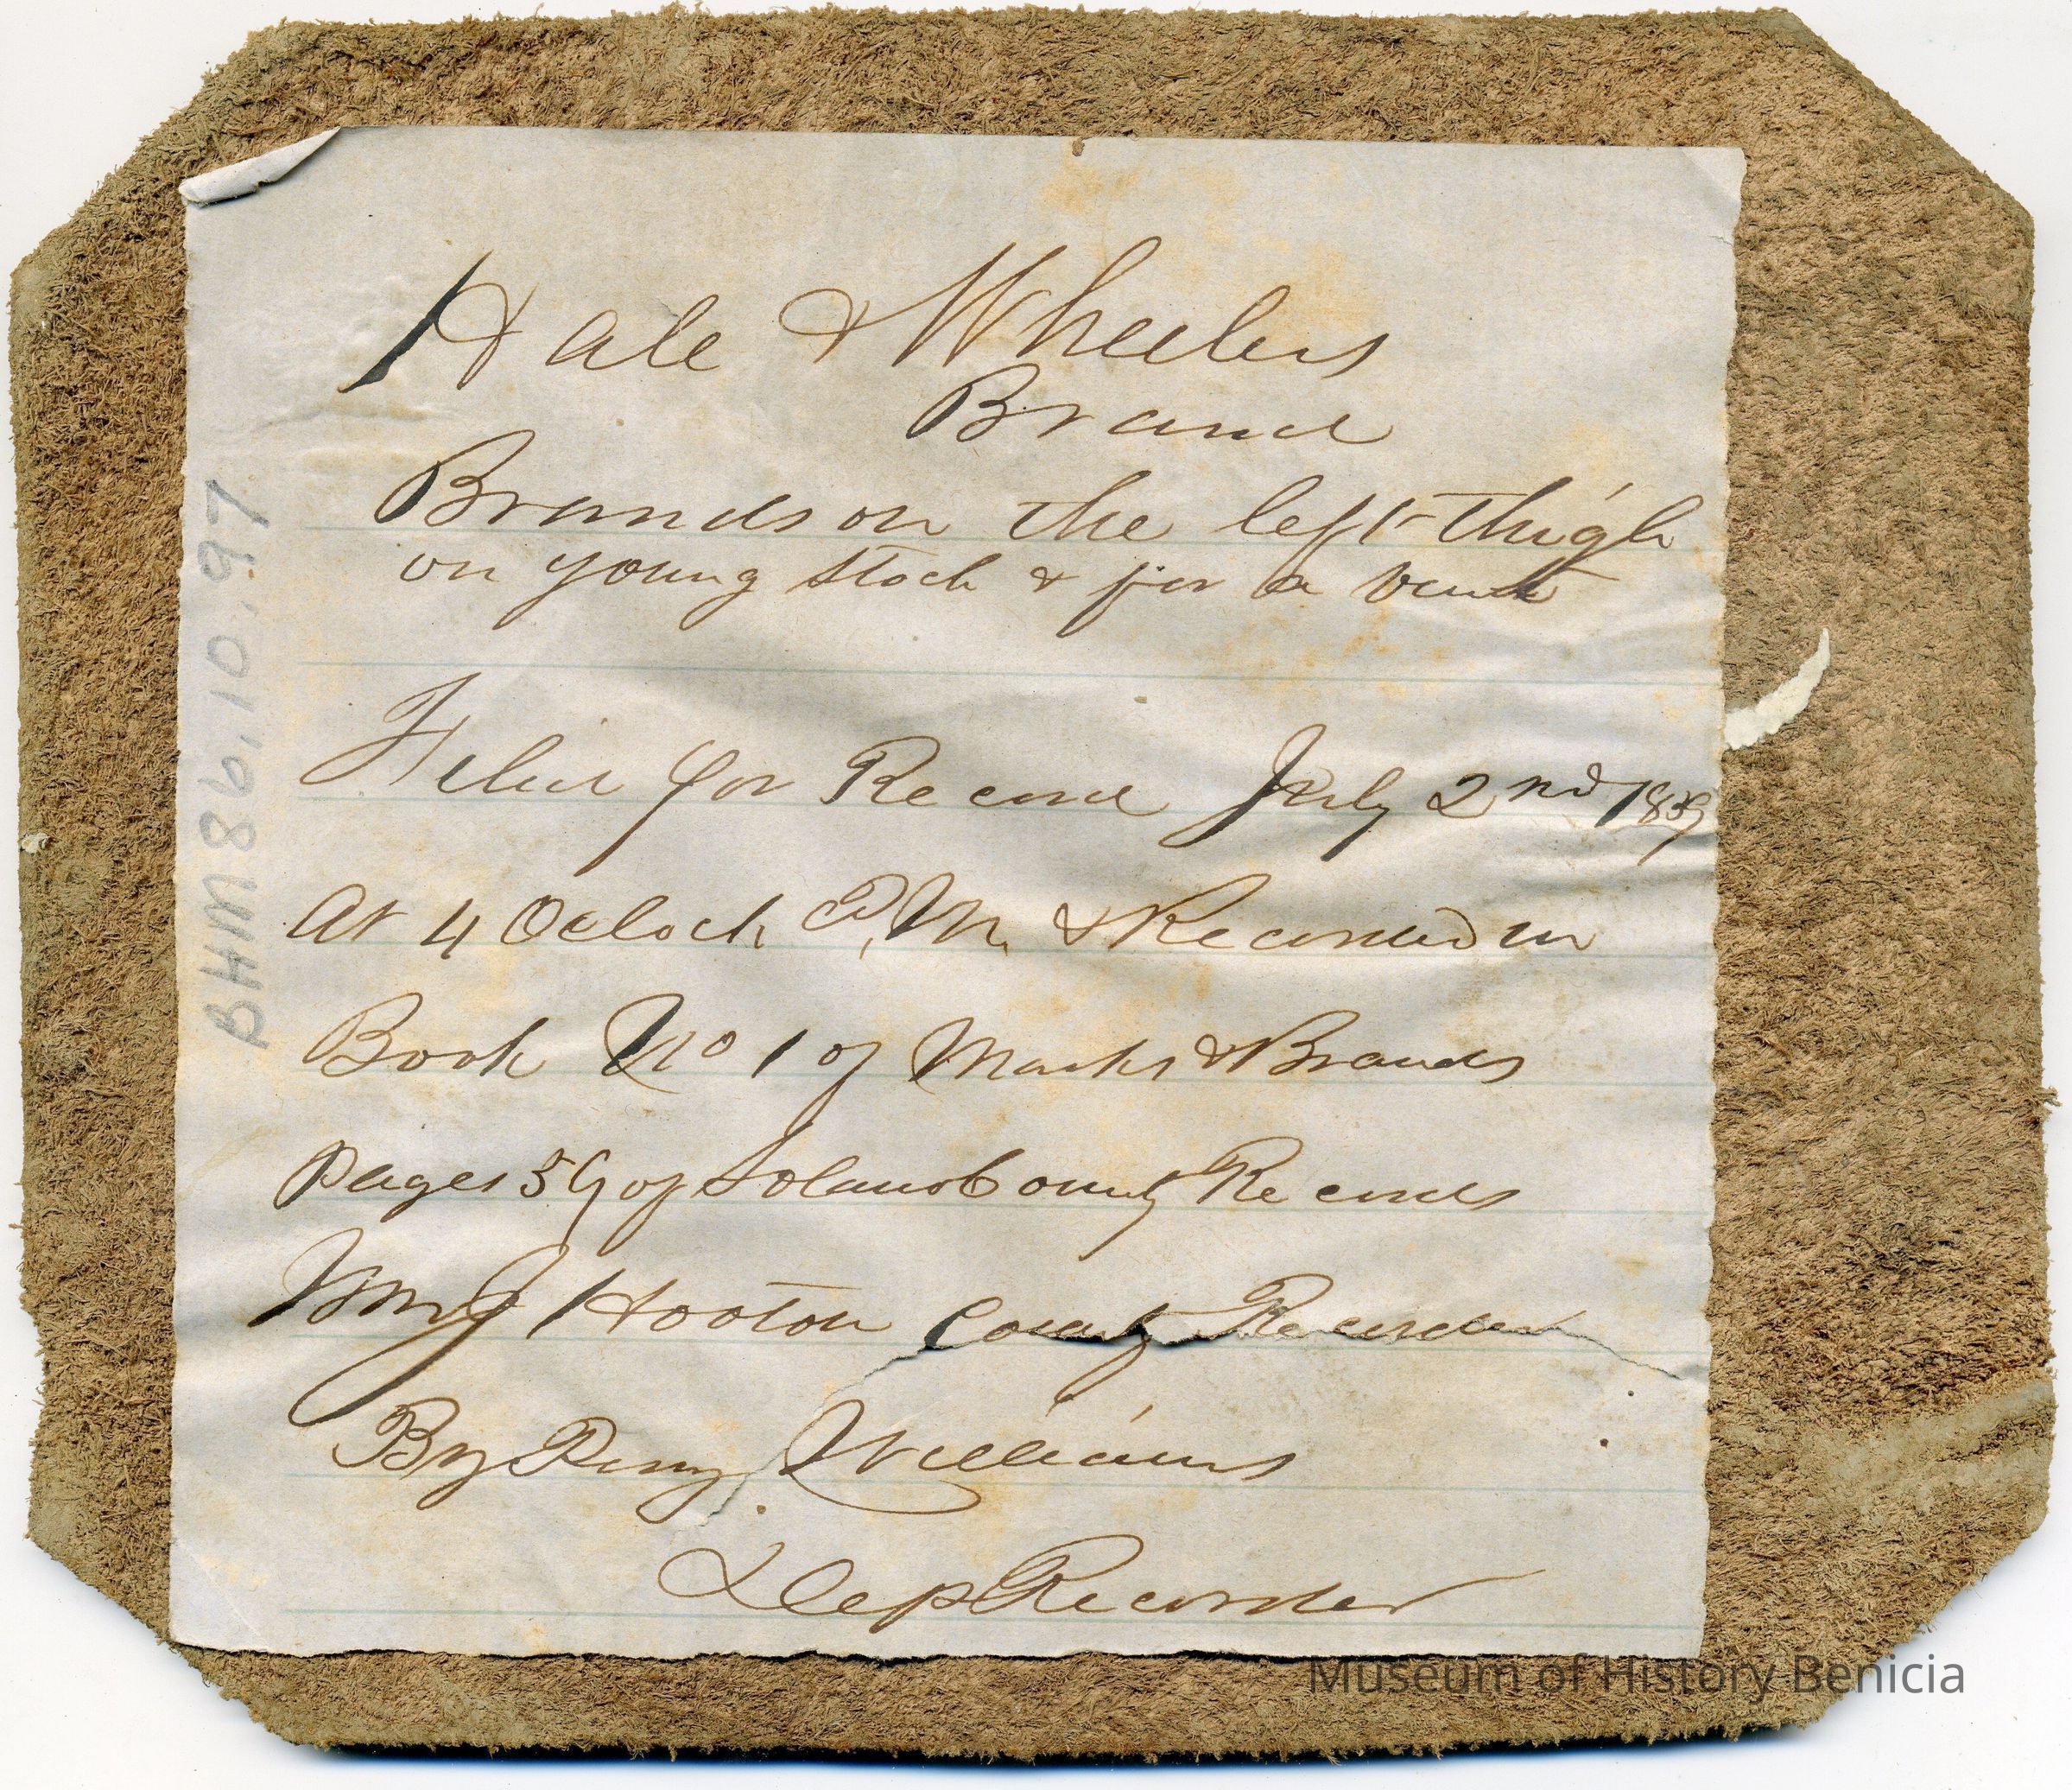 Hale & Wheelers
Brand
Brands on the left thigh
on young stock & for a vent
Filed for Record July 2nd 1859
At 4 Oclock P.M. & Recorded in
Book No 1 of Marks & Brands
pages 59 of Solano County Records
Wm J Hooton County Recorder
By Perry Williams
Dep Recorder
BHM 86.10.97
Museum of History Benicia